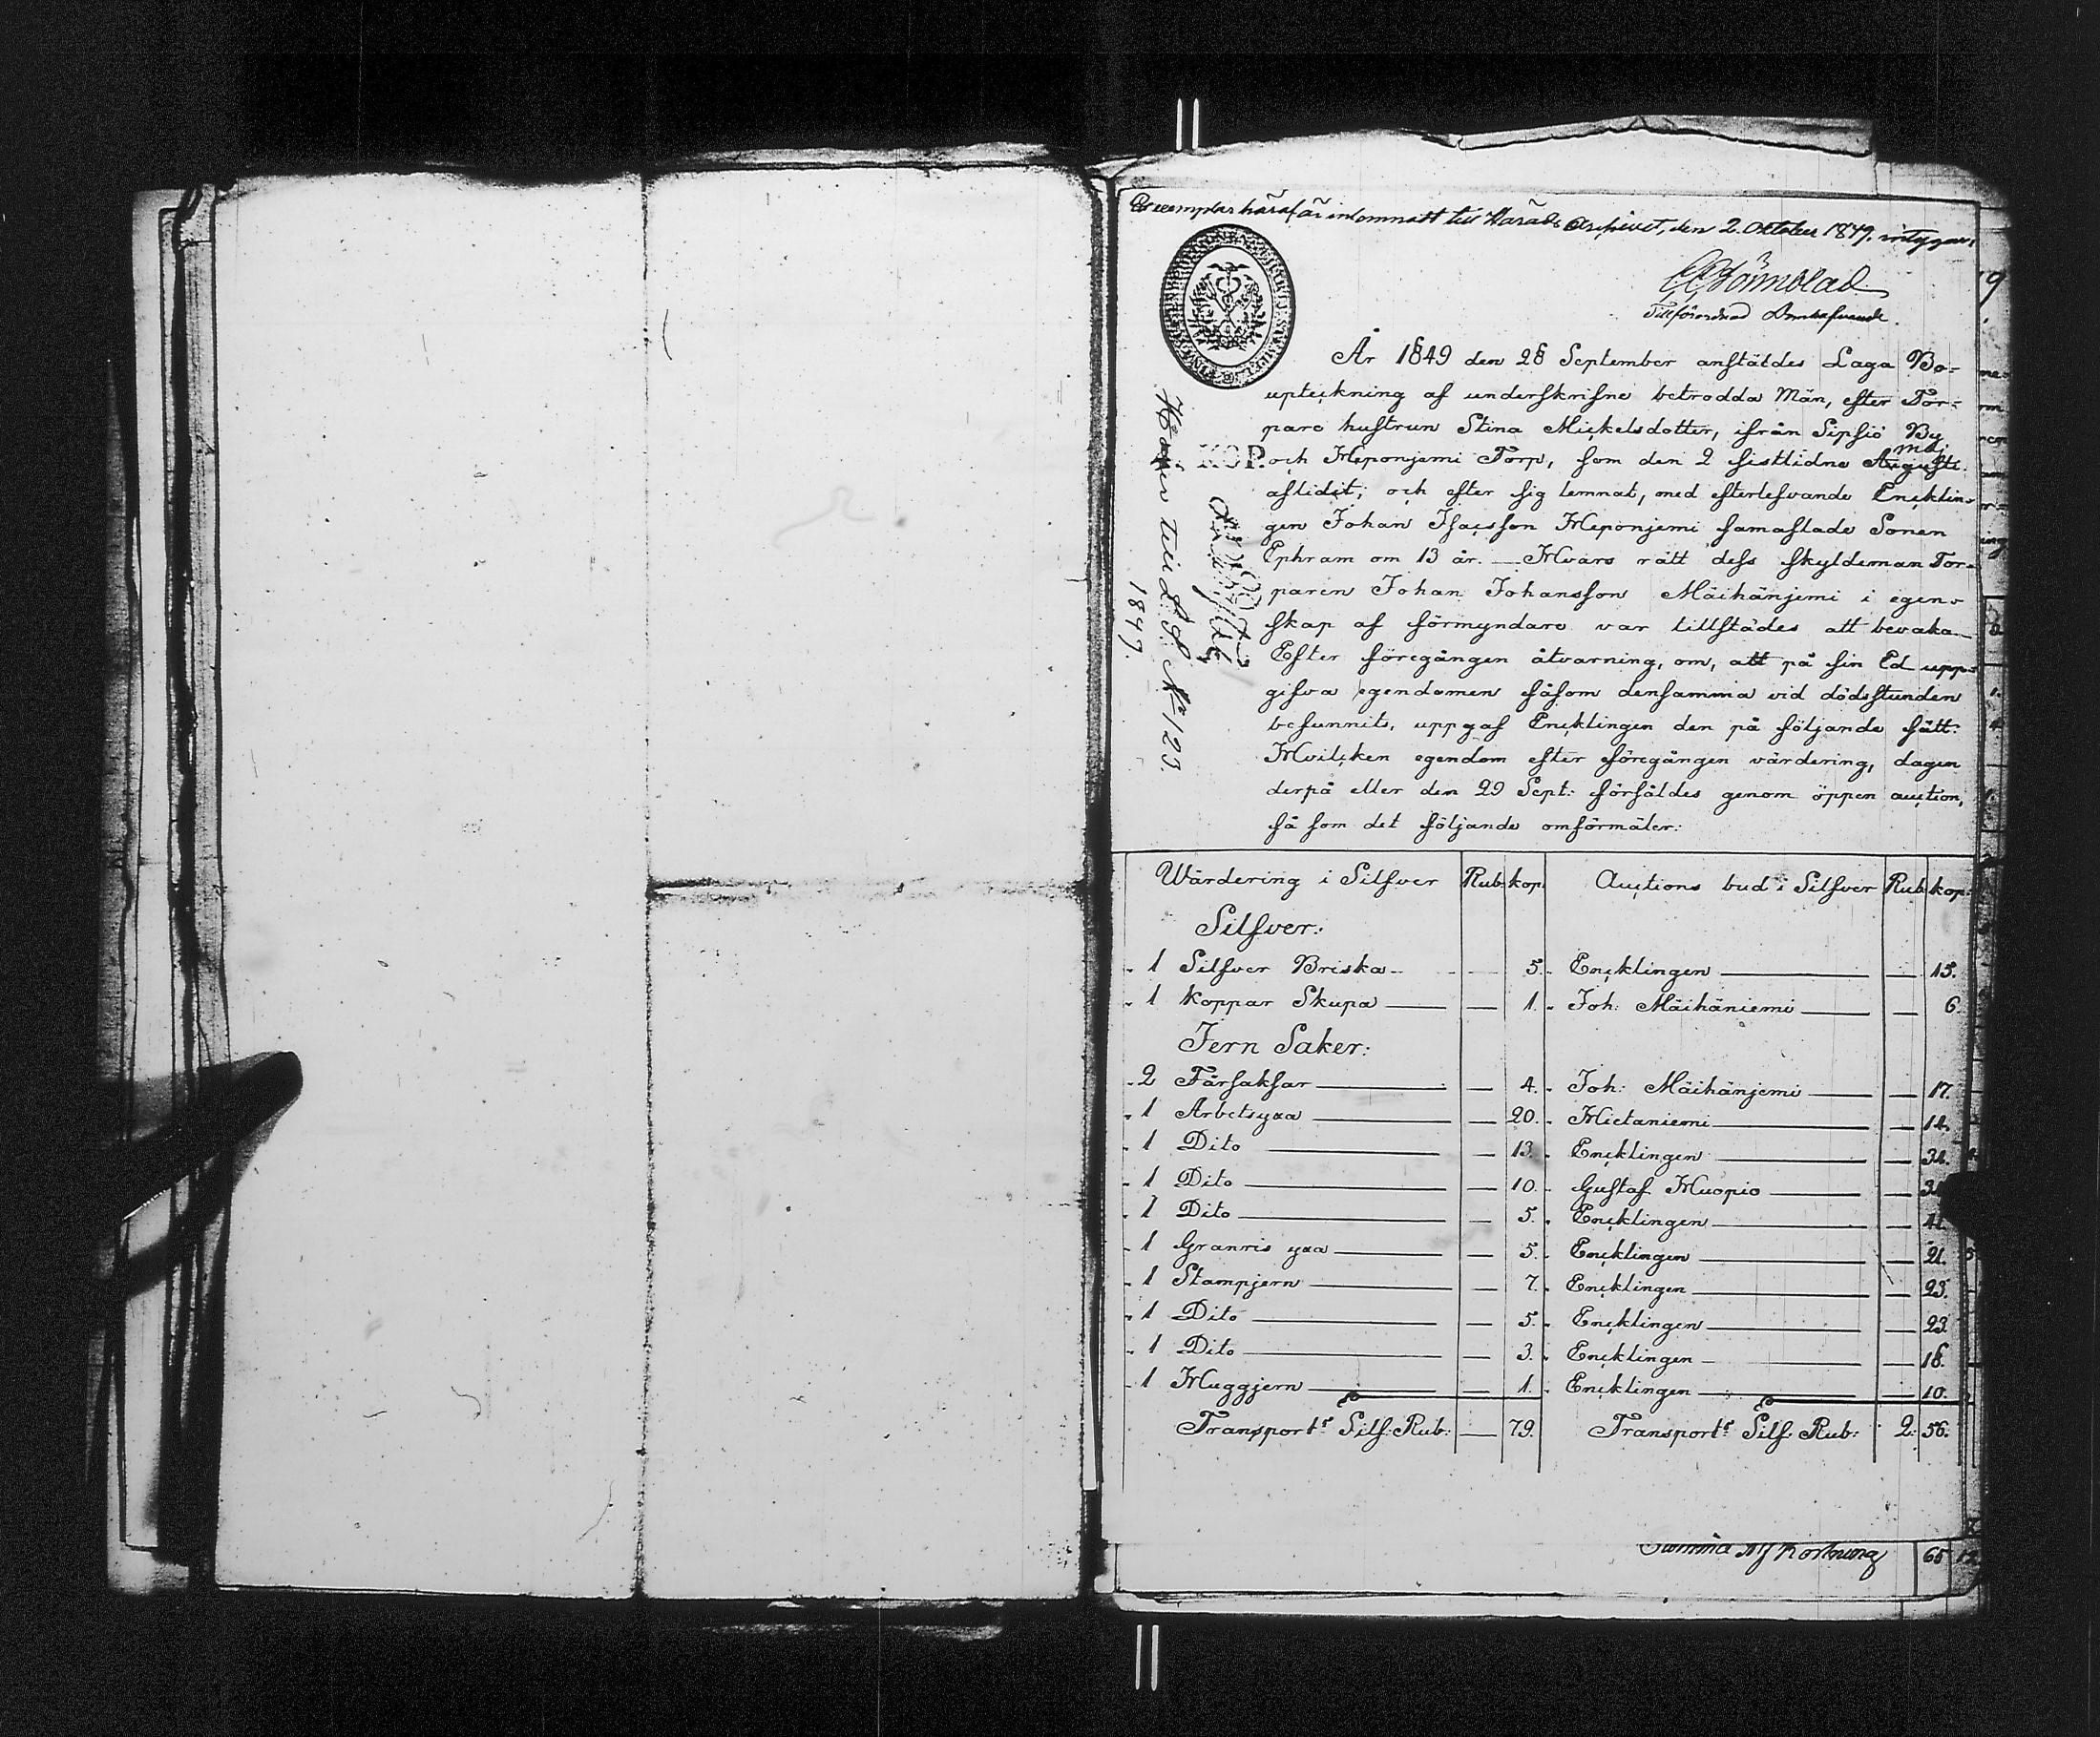 Exemplar häraf är inlemnadt till Härads Archivet, den 2. October 1849. intygar,
Tillförordnad Domhafvande.
År 1849 den 28 September anstäldes Laga Bo-
upteckning af underskrifne betrodda Män, efter Tor-
pare hustrun Stina Mickelsdotter, ifrån Sipsiö By
KOP. och Heponjemi Torp, som den 2 sistlidne Augusti Maj
aflidit, och efter sig lemnat, med efterlefvande Encklin-
gen Johan Isacsson Heponjemi samaflade Sonen
Ephram om 13 år. — Hvars rätt dess skyldeman Tor-
paren Johan Johansson Mäihänjemi i egen-
skap af förmyndare var tillstädes att bevaka —
Efter föregången åtvarning, om, att på sin Ed upp-
gifva egendomen såsom densamma vid dödsstunden
befunnits, uppgaf Encklingen den på följande sätt:
Hvilcken egendom efter föregången värdering, dagen
derpå eller den 29 Sept: försåldes genom öppen auction,
så som det följande omförmäler:
Hörer till L. S. No 123.
1849.
Wärdering i Silfver Rub: kop: Auctions bud i Silfver Rub: kop:
Silfver:
1 Silfver Briska — 5. Encklingen — 15.
1 Koppar Skupa — 1. Joh: Mäihäniemi — 6.
Jern Saker:
2 Fårsaksar — 4. Joh: Mäihänjemi — 17.
1 Arbetsyxa — 20. Hietaniemi — 12.
1 Dito — 13. Encklingen — 32.
1 Dito — 10. Gustaf Huopio —
1 Dito — 5. Encklingen —
1 Granris yxa — 5. Encklingen — 21.
1 Stampjern — 7. Encklingen — 23.
1 Dito — 5. Encklingen — 23.
1 Dito — 3. Encklingen — 18.
1 Huggjern — 1. Encklingen — 10.
Transport: Silf: Rub: — 79. Transport: Silf: Rub: 2. 56.
Summa Afkortning 65